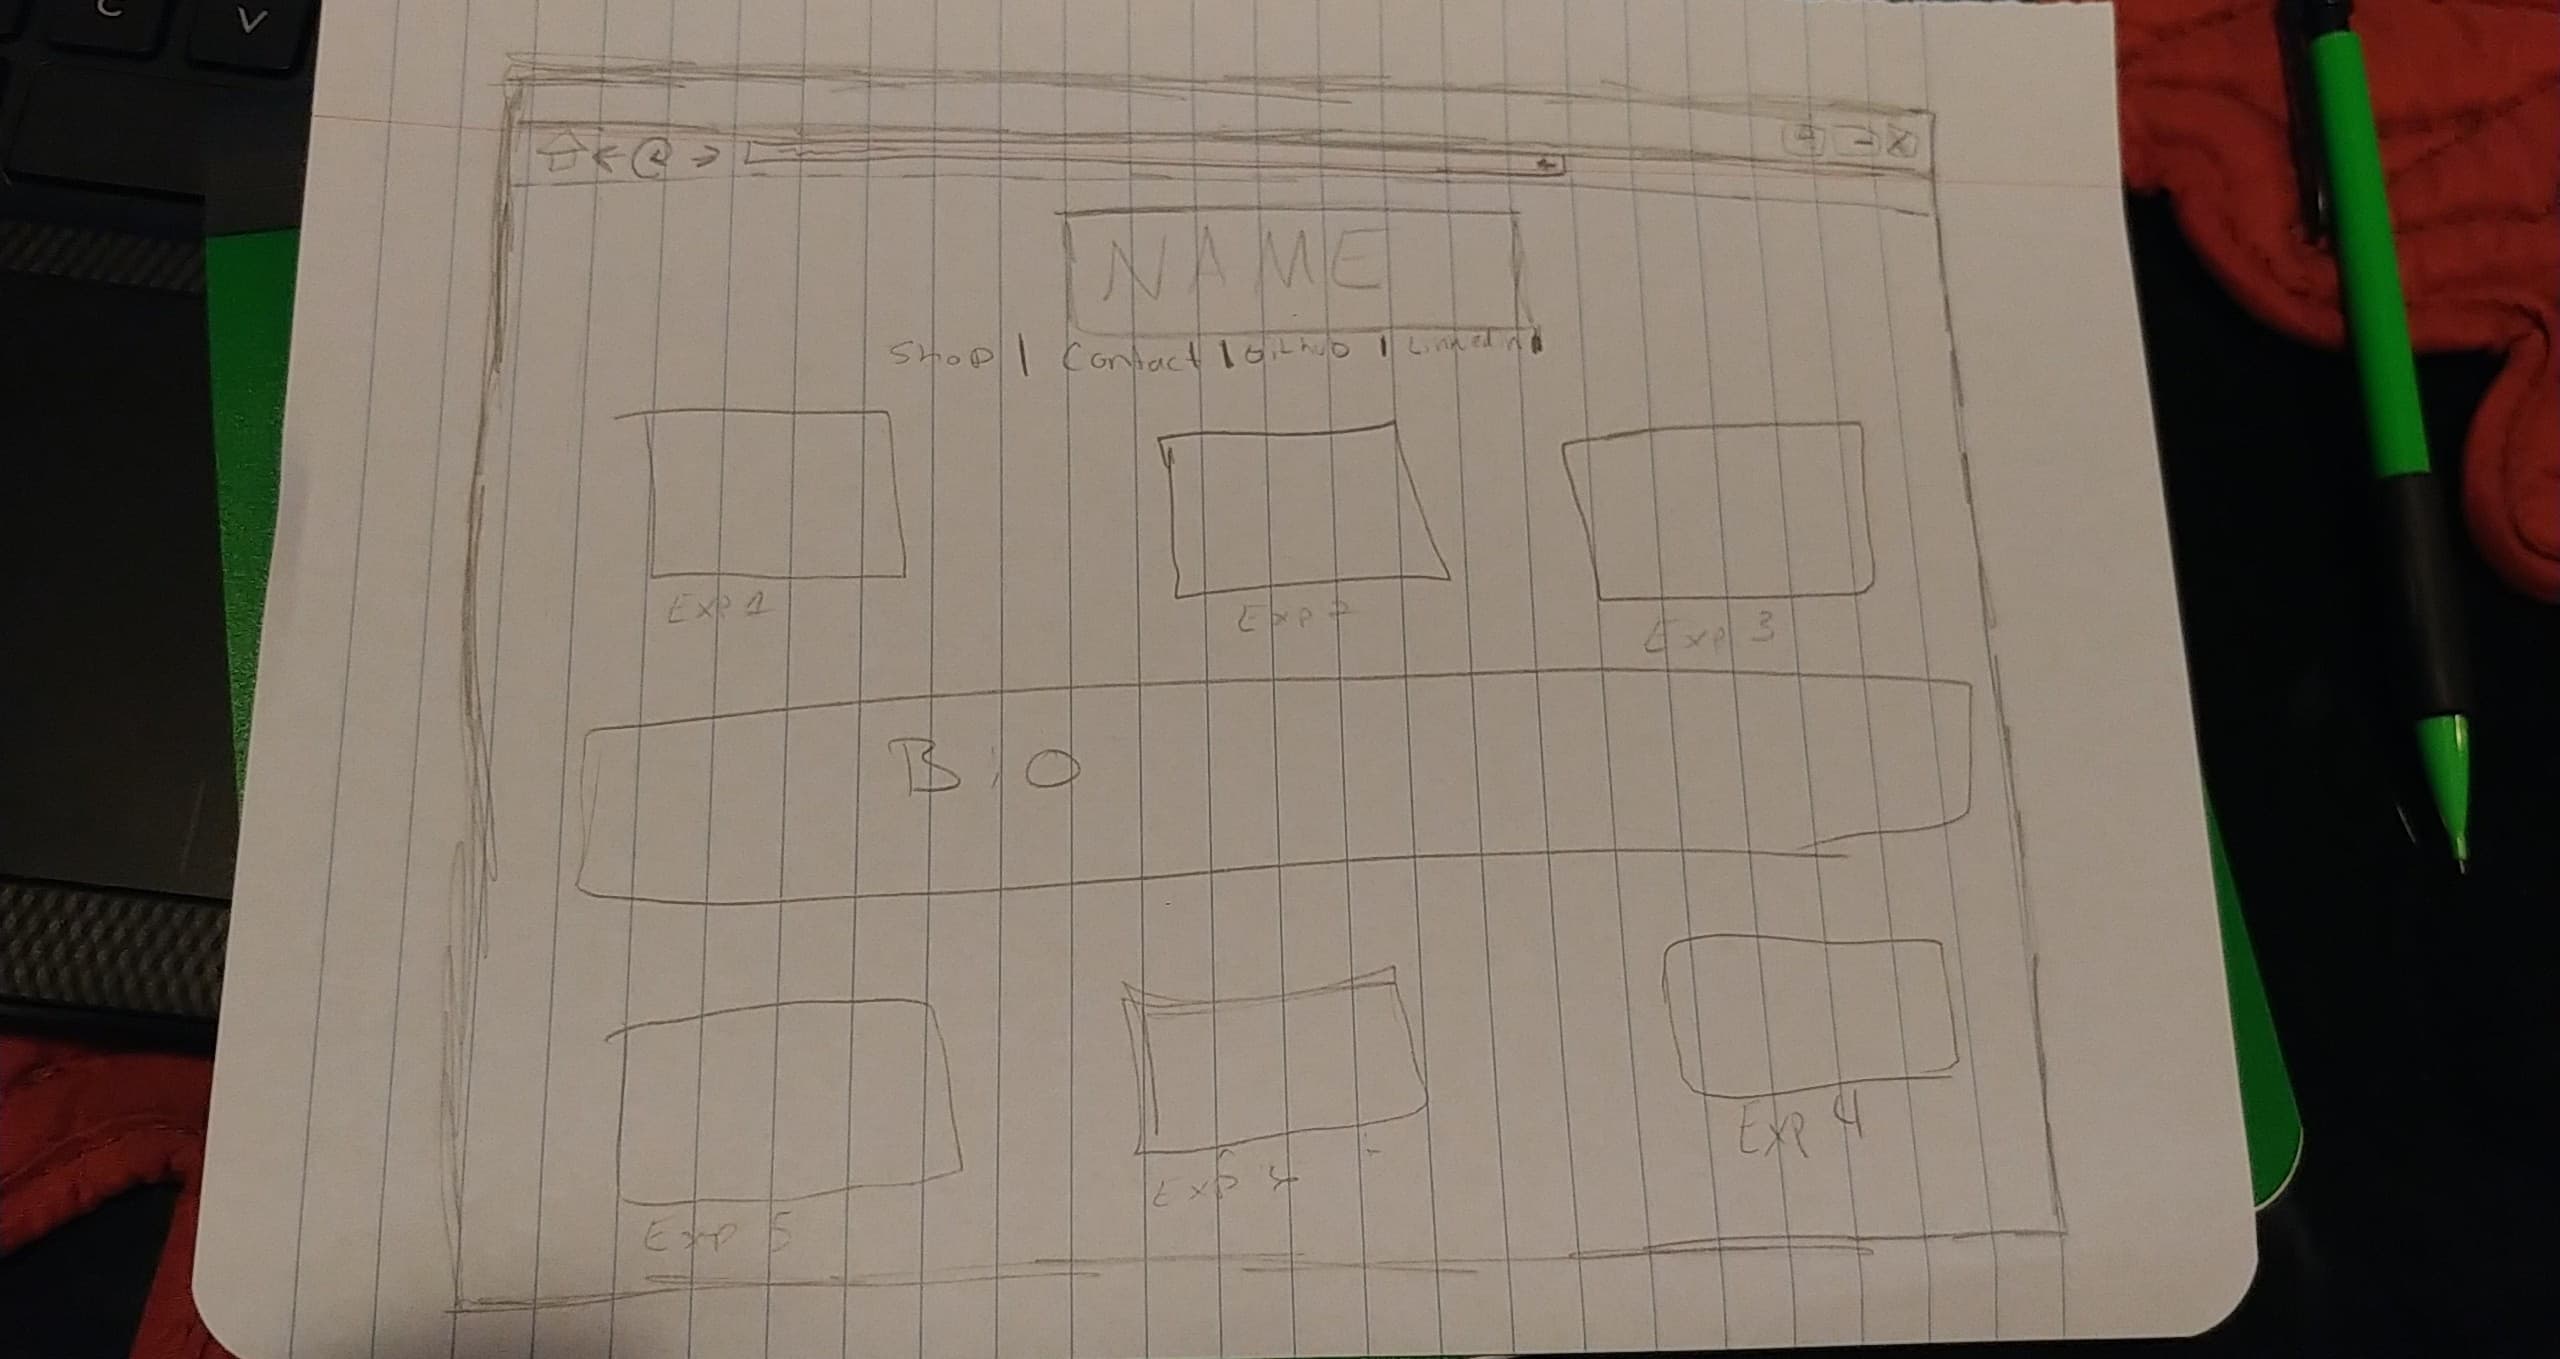 C V
NAME
Shop | Contact | Github | Linkedin |
Exp 1 Exp 2 Exp 3
Bio
Exp 5 Exp Exp 4